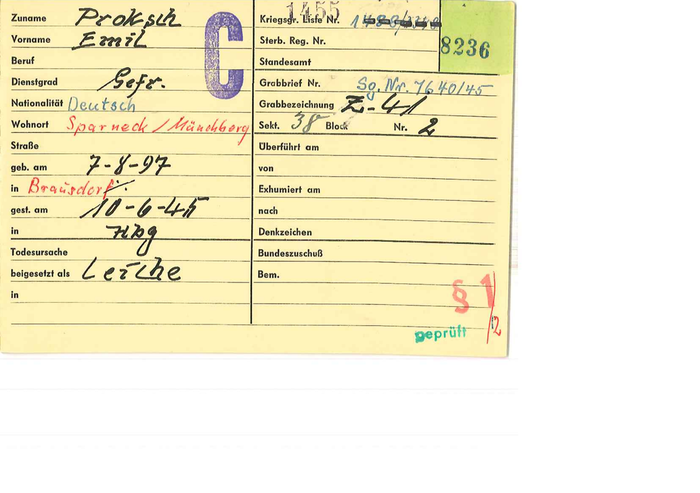 Zuname Proksch
Vorname Emil
Beruf
Dienstgrad Gefr.
Nationalität Deutsch
Wohnort Sparneck / Münchberg
Straße
geb. am 7-8-97
in Brausdorf
gest. am 10-6-45
in Hbg
Todesursache
beigesetzt als Leiche
in
C
1455
Kriegsgr. Liste Nr.
Sterb. Reg. Nr.
8236
Standesamt
Grabbrief Nr. Sg. Nr. 7640/45
Grabbezeichnung Z-41
Sekt. 38 Block Nr. 2
Überführt am
von
Exhumiert am
nach
Denkzeichen
Bundeszuschuß
Bem.
§ 1
/12
geprüft